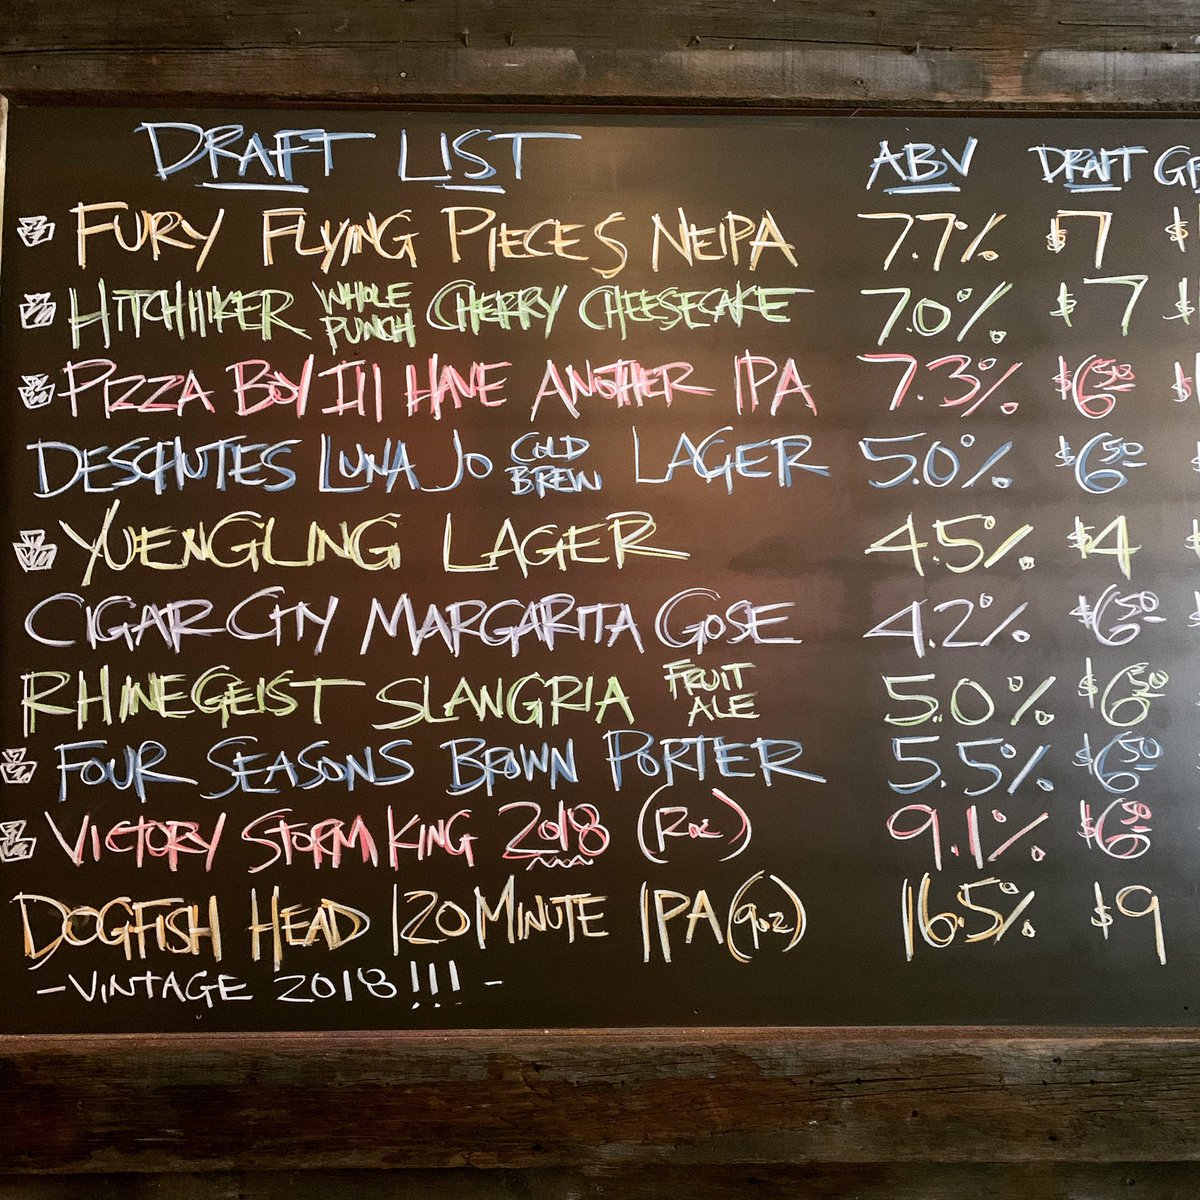 DRAFT LIST ABV DRAFT
FURY FLYING PIECES NEIPA 7.7% $7 $
HITCHHIKER WHOLE PUNCH CHERRY CHEESECAKE 7.0% $7 $
PIZZA BOY I'll HAVE ANOTHER IPA 7.3% $6.50 $
DESCHUTES LUNA JO COLD BREW LAGER 5.0% $6.50
YUENGLING LAGER 4.5% $4
CIGAR CITY MARGARITA GOSE 4.2% $6.50
RHINEGEIST SLANGRIA FRUIT ALE 5.0% $6.50
FOUR SEASONS BROWN PORTER 5.5% $6.50
VICTORY STORM KING 2018 9.1% $6.50
DOGFISH HEAD 120 MINUTE IPA (9oz) 16.5% $9
-VINTAGE 2018!!!-